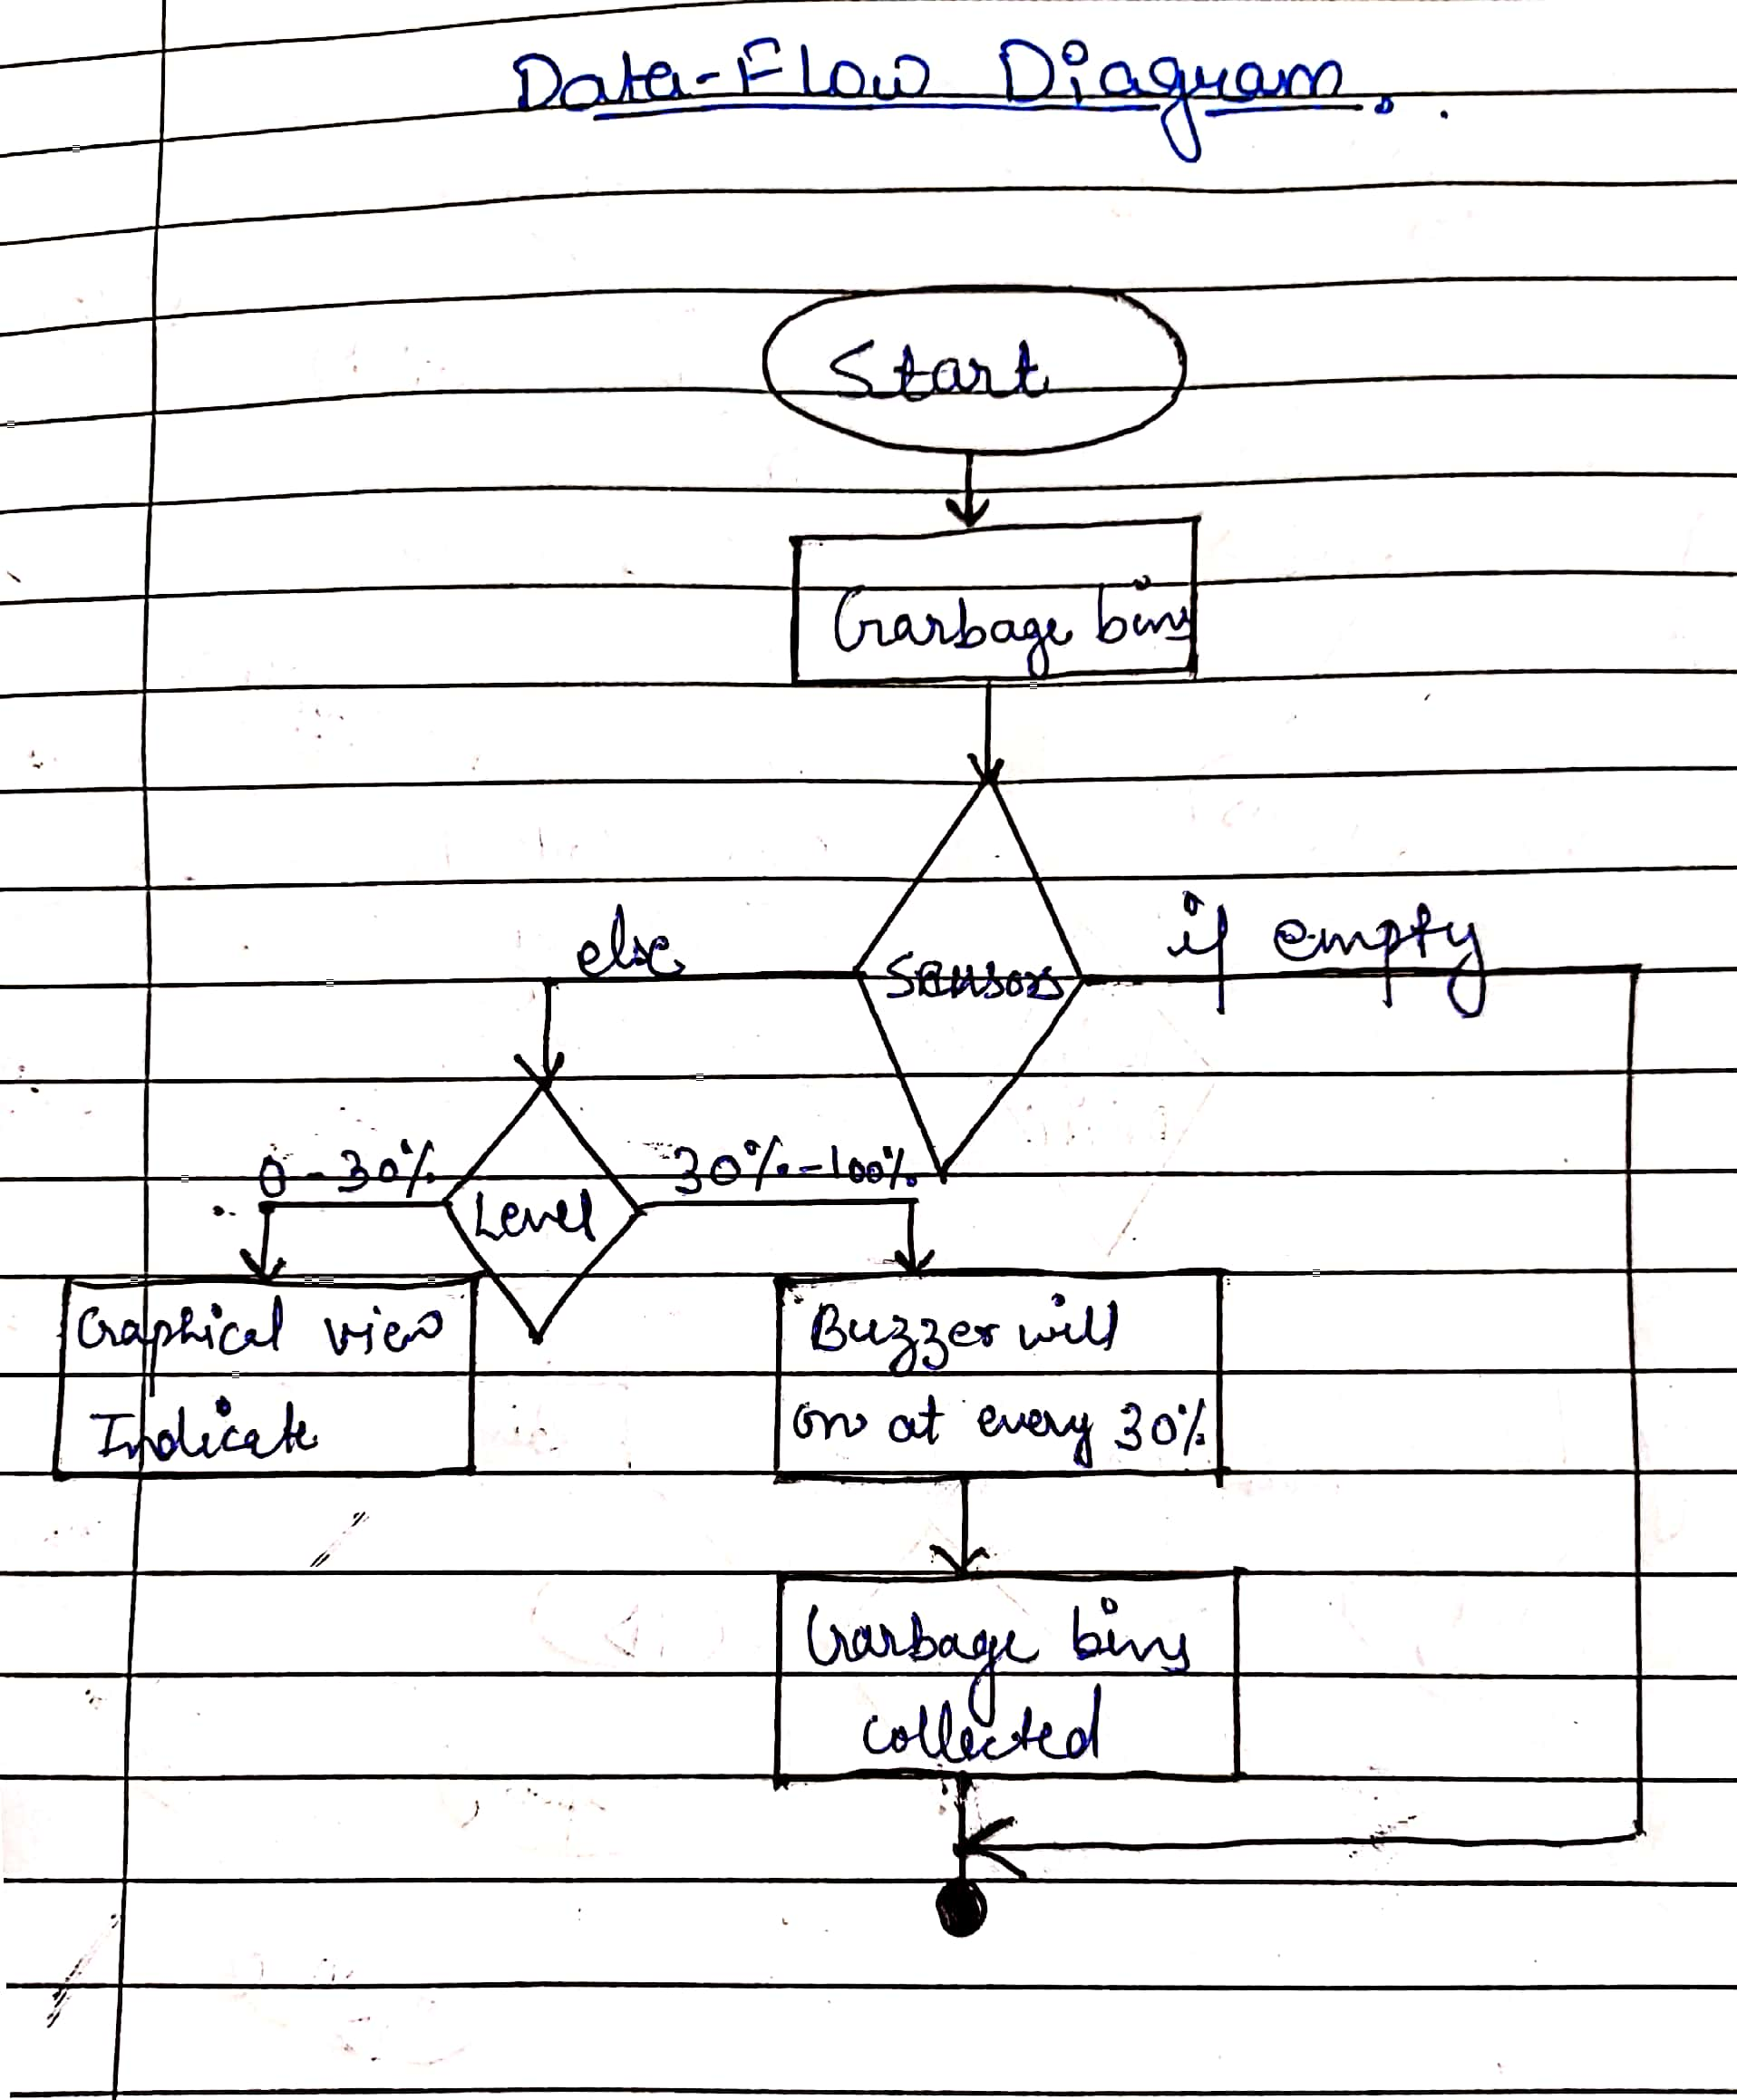 Data-Flow Diagram.
Start
Garbage bins
else
Sensors
if empty
0-30%
Level
30%-100%
Graphical view
Indicate
Buzzer will
on at every 30%
Garbage bins
collected